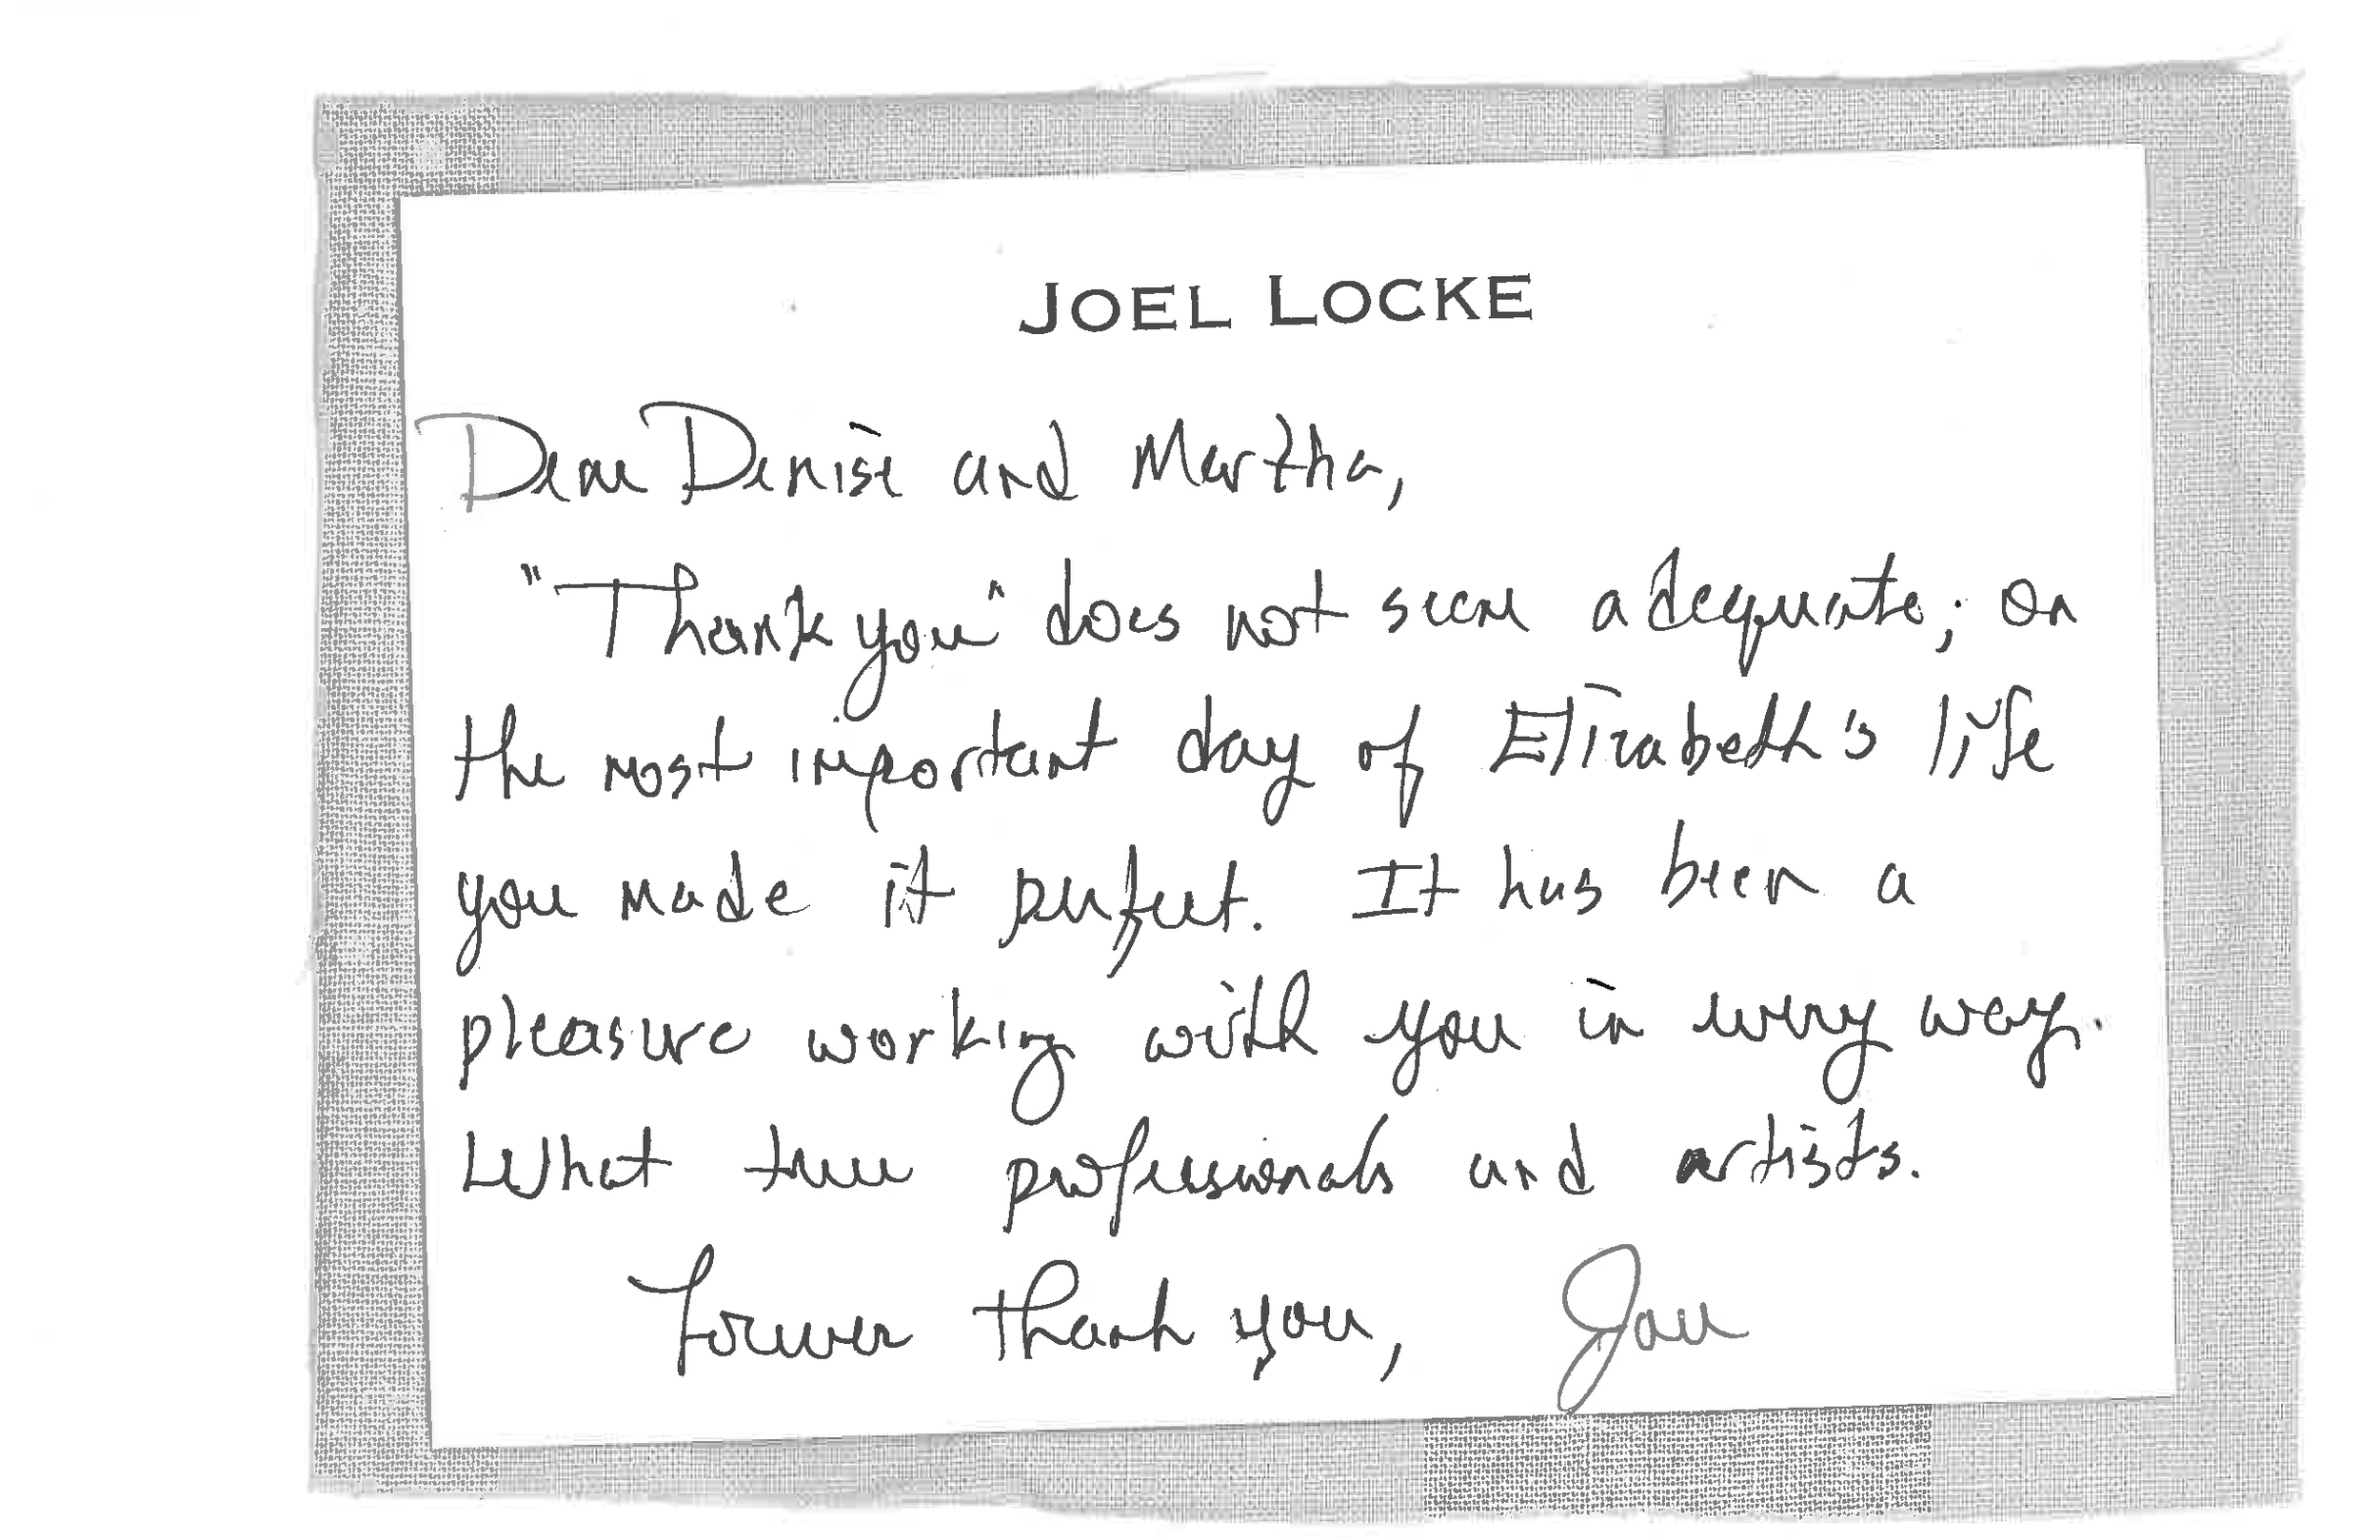 JOEL LOCKE
Dear Denise and Martha,
"Thank you" does not seem adequate; on
the most important day of Elizabeth's life
you made it perfect. It has been a
pleasure working with you in every way.
What true professionals and artists.
Forever thank you,